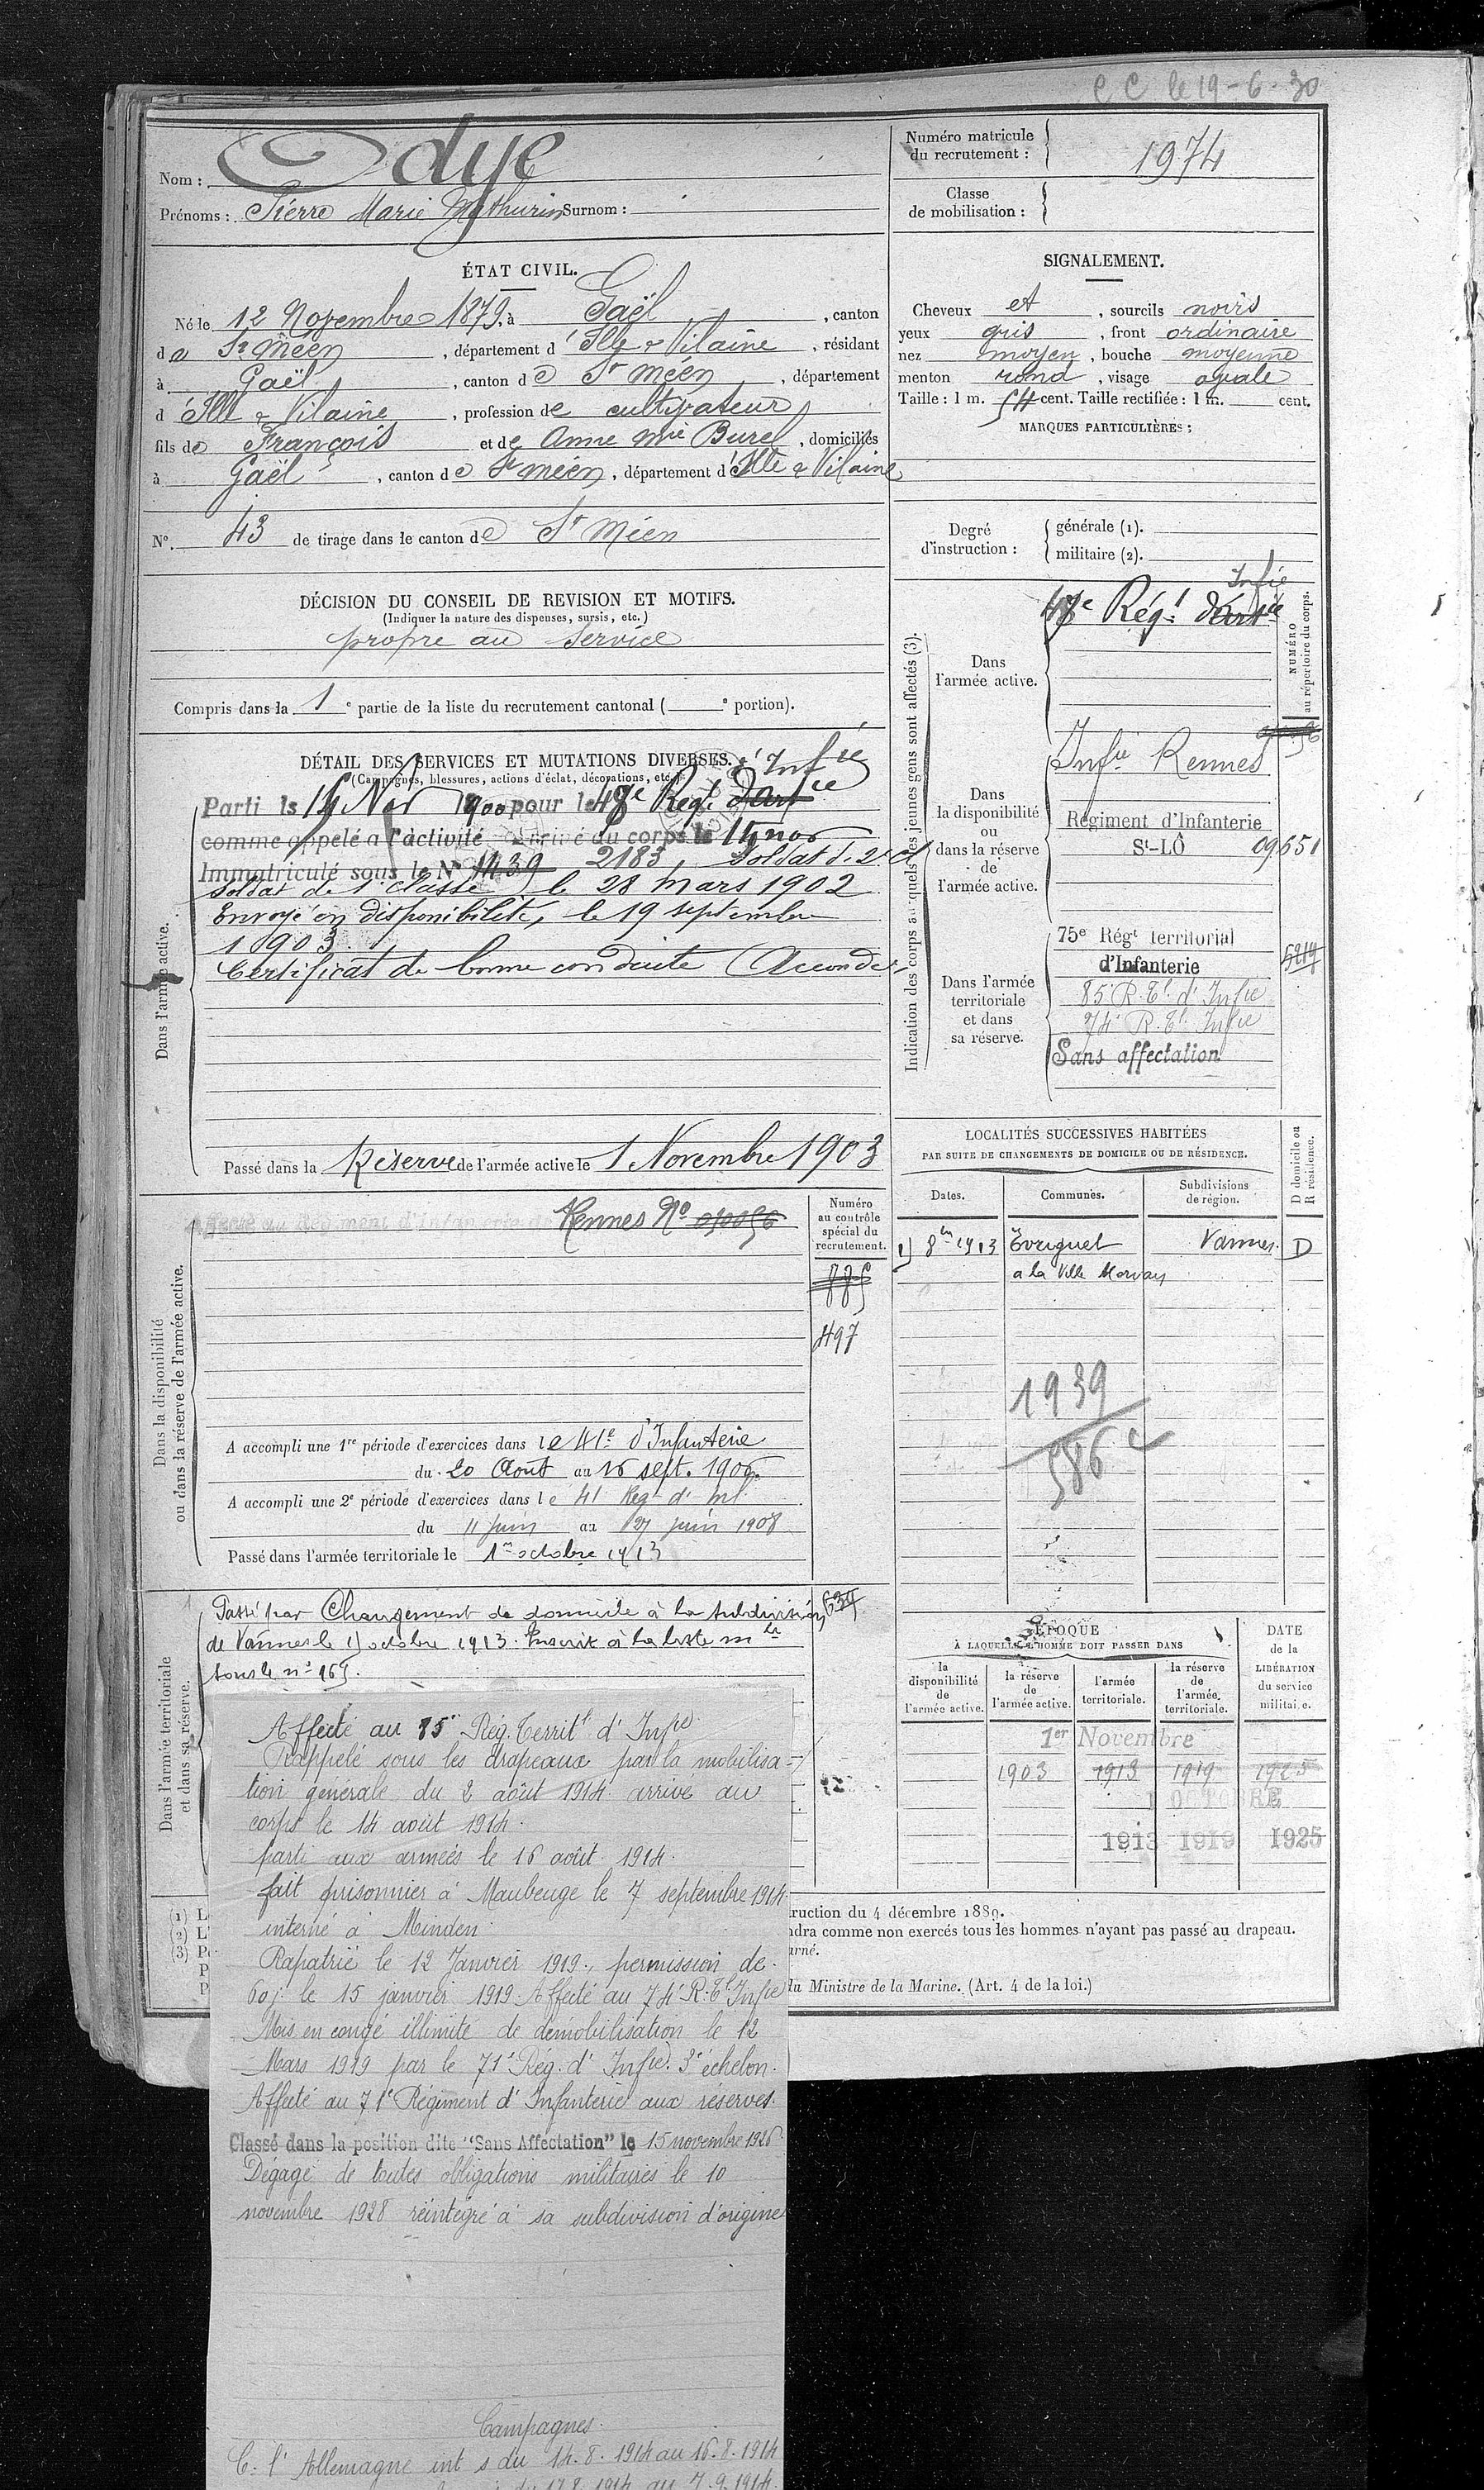 C C le 19-6-30
Nom : Odye
Prénoms : Pierre Marie Mathurin Surnom :
Numéro matricule du recrutement : 1974
Classe de mobilisation :
ÉTAT CIVIL.
Né le 12 Novembre 1879, à Gaël, canton
de St Méen, département d'Ille & Vilaine, résidant
à Gaël, canton de St Méen, département
d'Ille & Vilaine, profession de cultivateur
fils de François et de Anne Mie Burel, domiciliés
à Gaël, canton de St Méen, département d'Ille & Vilaine
N° 43 de tirage dans le canton de St Méen
SIGNALEMENT.
Cheveux et, sourcils noirs
yeux gris, front ordinaire
nez moyen, bouche moyenne
menton rond, visage ovale
Taille : 1 m. 54 cent. Taille rectifiée : 1 m. cent.
MARQUES PARTICULIÈRES :
Degré d'instruction : générale (1).
militaire (2).
DÉCISION DU CONSEIL DE REVISION ET MOTIFS.
(Indiquer la nature des dispenses, sursis, etc.)
propre au service
Compris dans la 1e partie de la liste du recrutement cantonal ( e portion).
DÉTAIL DES SERVICES ET MUTATIONS DIVERSES.
(Campagnes, blessures, actions d'éclat, décorations, etc.)
Infie
Parti le 14 Nov 1900 pour le 48e Régt d'artie
comme appelé à l'activité arrivé au corps le 14 nov
Immatriculé sous le N° 1439 2183, Soldat de 2e cl
soldat de 1e classe, le 28 mars 1902
Envoyé en disponibilité, le 19 septembre
1903
Certificat de bonne conduite Accordé
Dans l'armée active.
Passé dans la Réserve de l'armée active le 1 Novembre 1903
Indication des corps auxquels les jeunes gens sont affectés (3).
NUMÉRO au répertoire du corps.
Dans l'armée active.
Infie
48e Régt d'artie
Dans la disponibilité ou dans la réserve de l'armée active.
Infie Rennes
Régiment d'Infanterie
St-LÔ 09651
Dans l'armée territoriale et dans sa réserve.
75e Régt territorial
d'Infanterie 5214
85 R. Tl d'Infie
74e R. Tl Infie
Sans affectation
LOCALITÉS SUCCESSIVES HABITÉES
PAR SUITE DE CHANGEMENTS DE DOMICILE OU DE RÉSIDENCE.
Dates. Communes. Subdivisions de région. D domicile ou R résidence.
8bre 1913 Evriguet Vannes. D
a la Ville Morvan
1939
586 c
Dans la disponibilité
ou dans la réserve de l'armée active.
Affecté au Régiment d'Infanterie de Rennes No
Numéro au contrôle spécial du recrutement.
885
497
A accompli une 1re période d'exercices dans le 41e d'Infanterie
du 20 Août au 16 sept. 1906
A accompli une 2e période d'exercices dans le 41 Régt d'Inf
du 11 juin au 27 juin 1908
Passé dans l'armée territoriale le 1er octobre 1913
Dans l'armée territoriale
et dans sa réserve.
Passé par Changement de domicile à la subdivision 634
de Vannes le octobre 1913. Inscrit à la liste mle
sous le n°
Affecté au 85e Rég. Territl d'Infie
Rappelé sous les drapeaux par la mobilisa-
tion générale du 2 août 1914. arrivé au
corps le 14 août 1914.
parti aux armées le 16 août 1914.
fait prisonnier à Maubeuge le 7 septembre 1914
interné à Minden
Rapatrié le 12 Janvier 1919, permission de
60 j. le 15 janvier 1919. Affecté au 74e R. Tl Infie
Mis en congé illimité de démobilisation le 12
Mars 1919 par le 71e Rég. d'Infie. 3e échelon.
Affecté au 71e Régiment d'Infanterie aux réserves.
Classé dans la position dite "Sans Affectation" le 15 novembre 1926
Dégagé de toutes obligations militaires le 10
novembre 1928 réintégré à sa subdivision d'origine
Campagnes.
C. l'Allemagne int s du 14.8.1914 au 16.8.1914
du 17.8.1914 au 7.9.1914.
ÉPOQUE
À LAQUELLE L'HOMME DOIT PASSER DANS
la disponibilité de l'armée active.
la réserve de l'armée active.
l'armée territoriale.
la réserve de l'armée territoriale.
DATE de la LIBÉRATION du service militaire.
1er Novembre
1903 1913 1919 1925
1 OCTOBRE
1913 1919 1925
(1) L
(2) L'
(3) P
P
P
ruction du 4 décembre 1889.
ndra comme non exercés tous les hommes n'ayant pas passé au drapeau.
arné.
du Ministre de la Marine. (Art. 4 de la loi.)